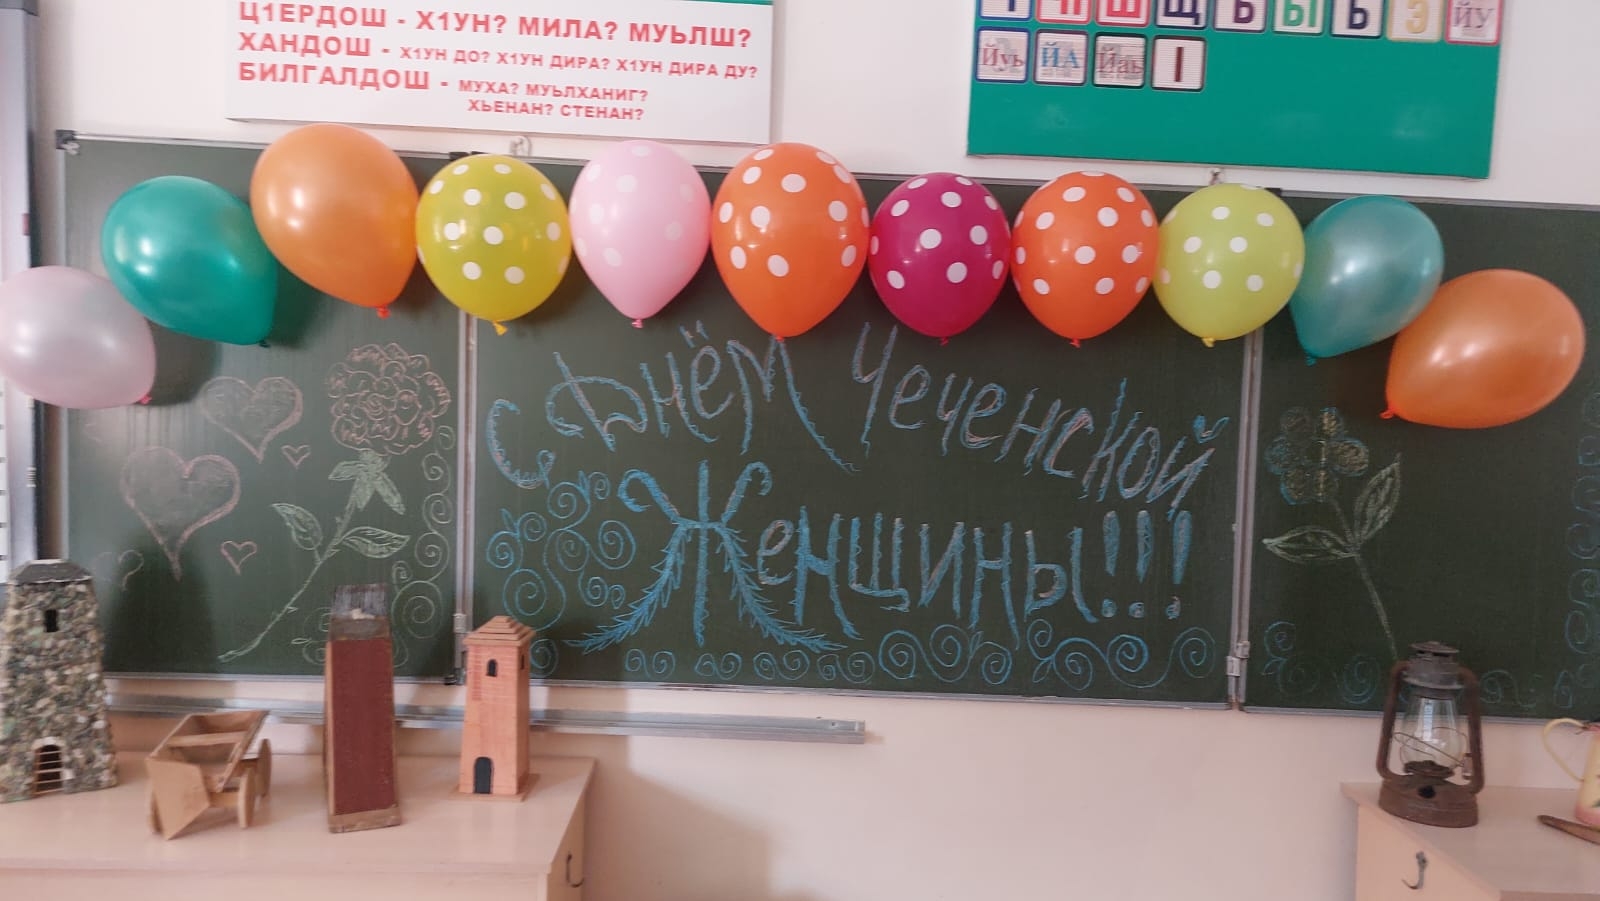 Ц1ЕРДОШ - Х1УН? МИЛА? МУЬЛШ?
ХАНДОШ - Х1УН ДО? Х1УН ДИРА? Х1УН ДИРА ДУ?
БИЛГАЛДОШ - МУХА? МУЬЛХАНИГ?
ХЬЕНАН? СТЕНАН?
Ч Ш Щ Ъ Ы Ь Э ЙУ
Йуь ЙА Йаь I
С Днём Чеченской
Женщины!!!